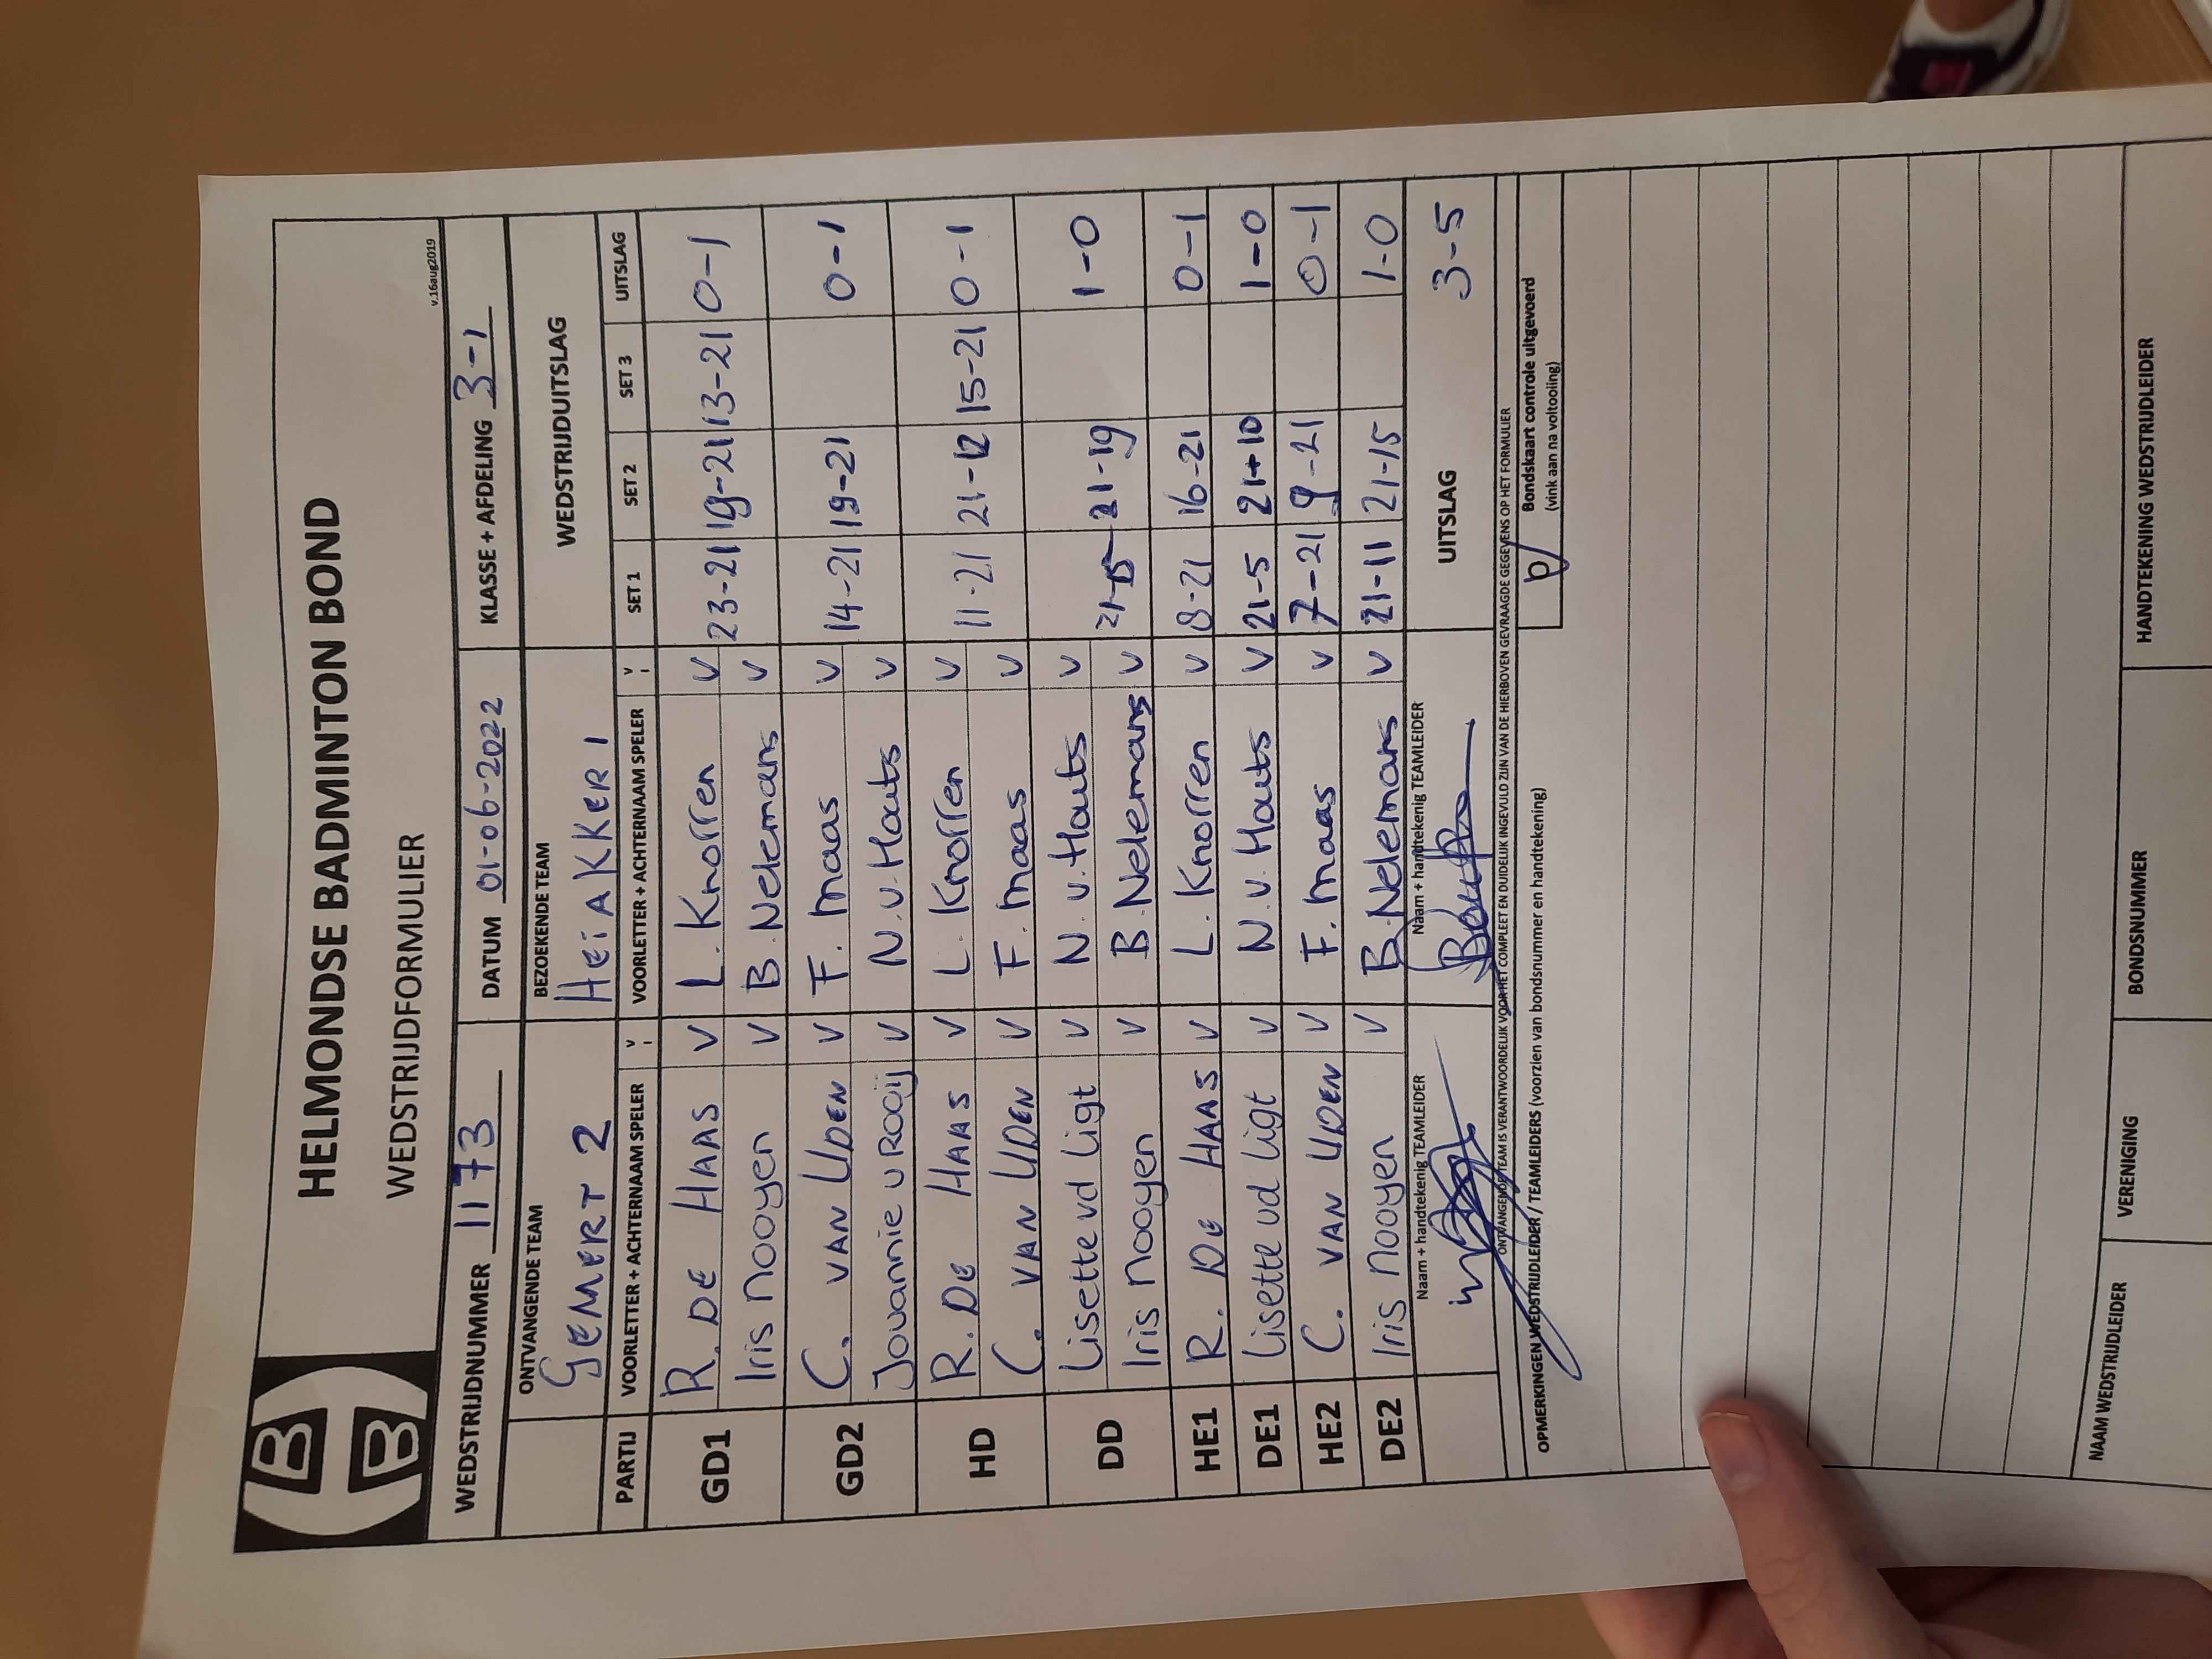 HELMONDSE BADMINTON BOND
WEDSTRIJDFORMULIER
v.16aug2019
WEDSTRIJDNUMMER 1173 DATUM 01-06-2022 KLASSE + AFDELING 3-1
ONTVANGENDE TEAM BEZOEKENDE TEAM WEDSTRIJDUITSLAG
GEMERT 2 HEiAKKER 1
PARTIJ VOORLETTER + ACHTERNAAM SPELER V VOORLETTER + ACHTERNAAM SPELER V SET 1 SET 2 SET 3 UITSLAG
GD1 R. DE HAAS V L. Knorren V 23-21 19-21 13-21 0-1
Iris Nooyen V B. Nelemans V
GD2 C. VAN UDEN V F. Maas V 14-21 19-21 0-1
Jovannie v Rooij V N. v. Houts V
HD R. DE HAAS V L. Knorren V 11-21 21-12 15-21 0-1
C. VAN UDEN V F. Maas V
DD Lisette vd Ligt V N v. Houts V 21-15 21-19 1-0
Iris Nooyen V B. Nelemans V
HE1 R. DE HAAS V L. Knorren V 8-21 16-21 0-1
DE1 Lisette vd Ligt V N. v. Houts V 21-5 21-10 1-0
HE2 C. VAN UDEN V F. Maas V 7-21 9-21 0-1
DE2 Iris Nooyen V B. Nelemans V 21-11 21-15 1-0
Naam + handtekenig TEAMLEIDER Naam + handtekenig TEAMLEIDER UITSLAG 3-5
ONTVANGENDE TEAM IS VERANTWOORDELIJK VOOR HET COMPLEET EN DUIDELIJK INGEVULD ZIJN VAN DE HIERBOVEN GEVRAAGDE GEGEVENS OP HET FORMULIER
OPMERKINGEN WEDSTRIJDLEIDER / TEAMLEIDERS (voorzien van bondsnummer en handtekening)
Bondskaart controle uitgevoerd
(vink aan na voltooiing)
NAAM WEDSTRIJDLEIDER VERENIGING BONDSNUMMER HANDTEKENING WEDSTRIJDLEIDER